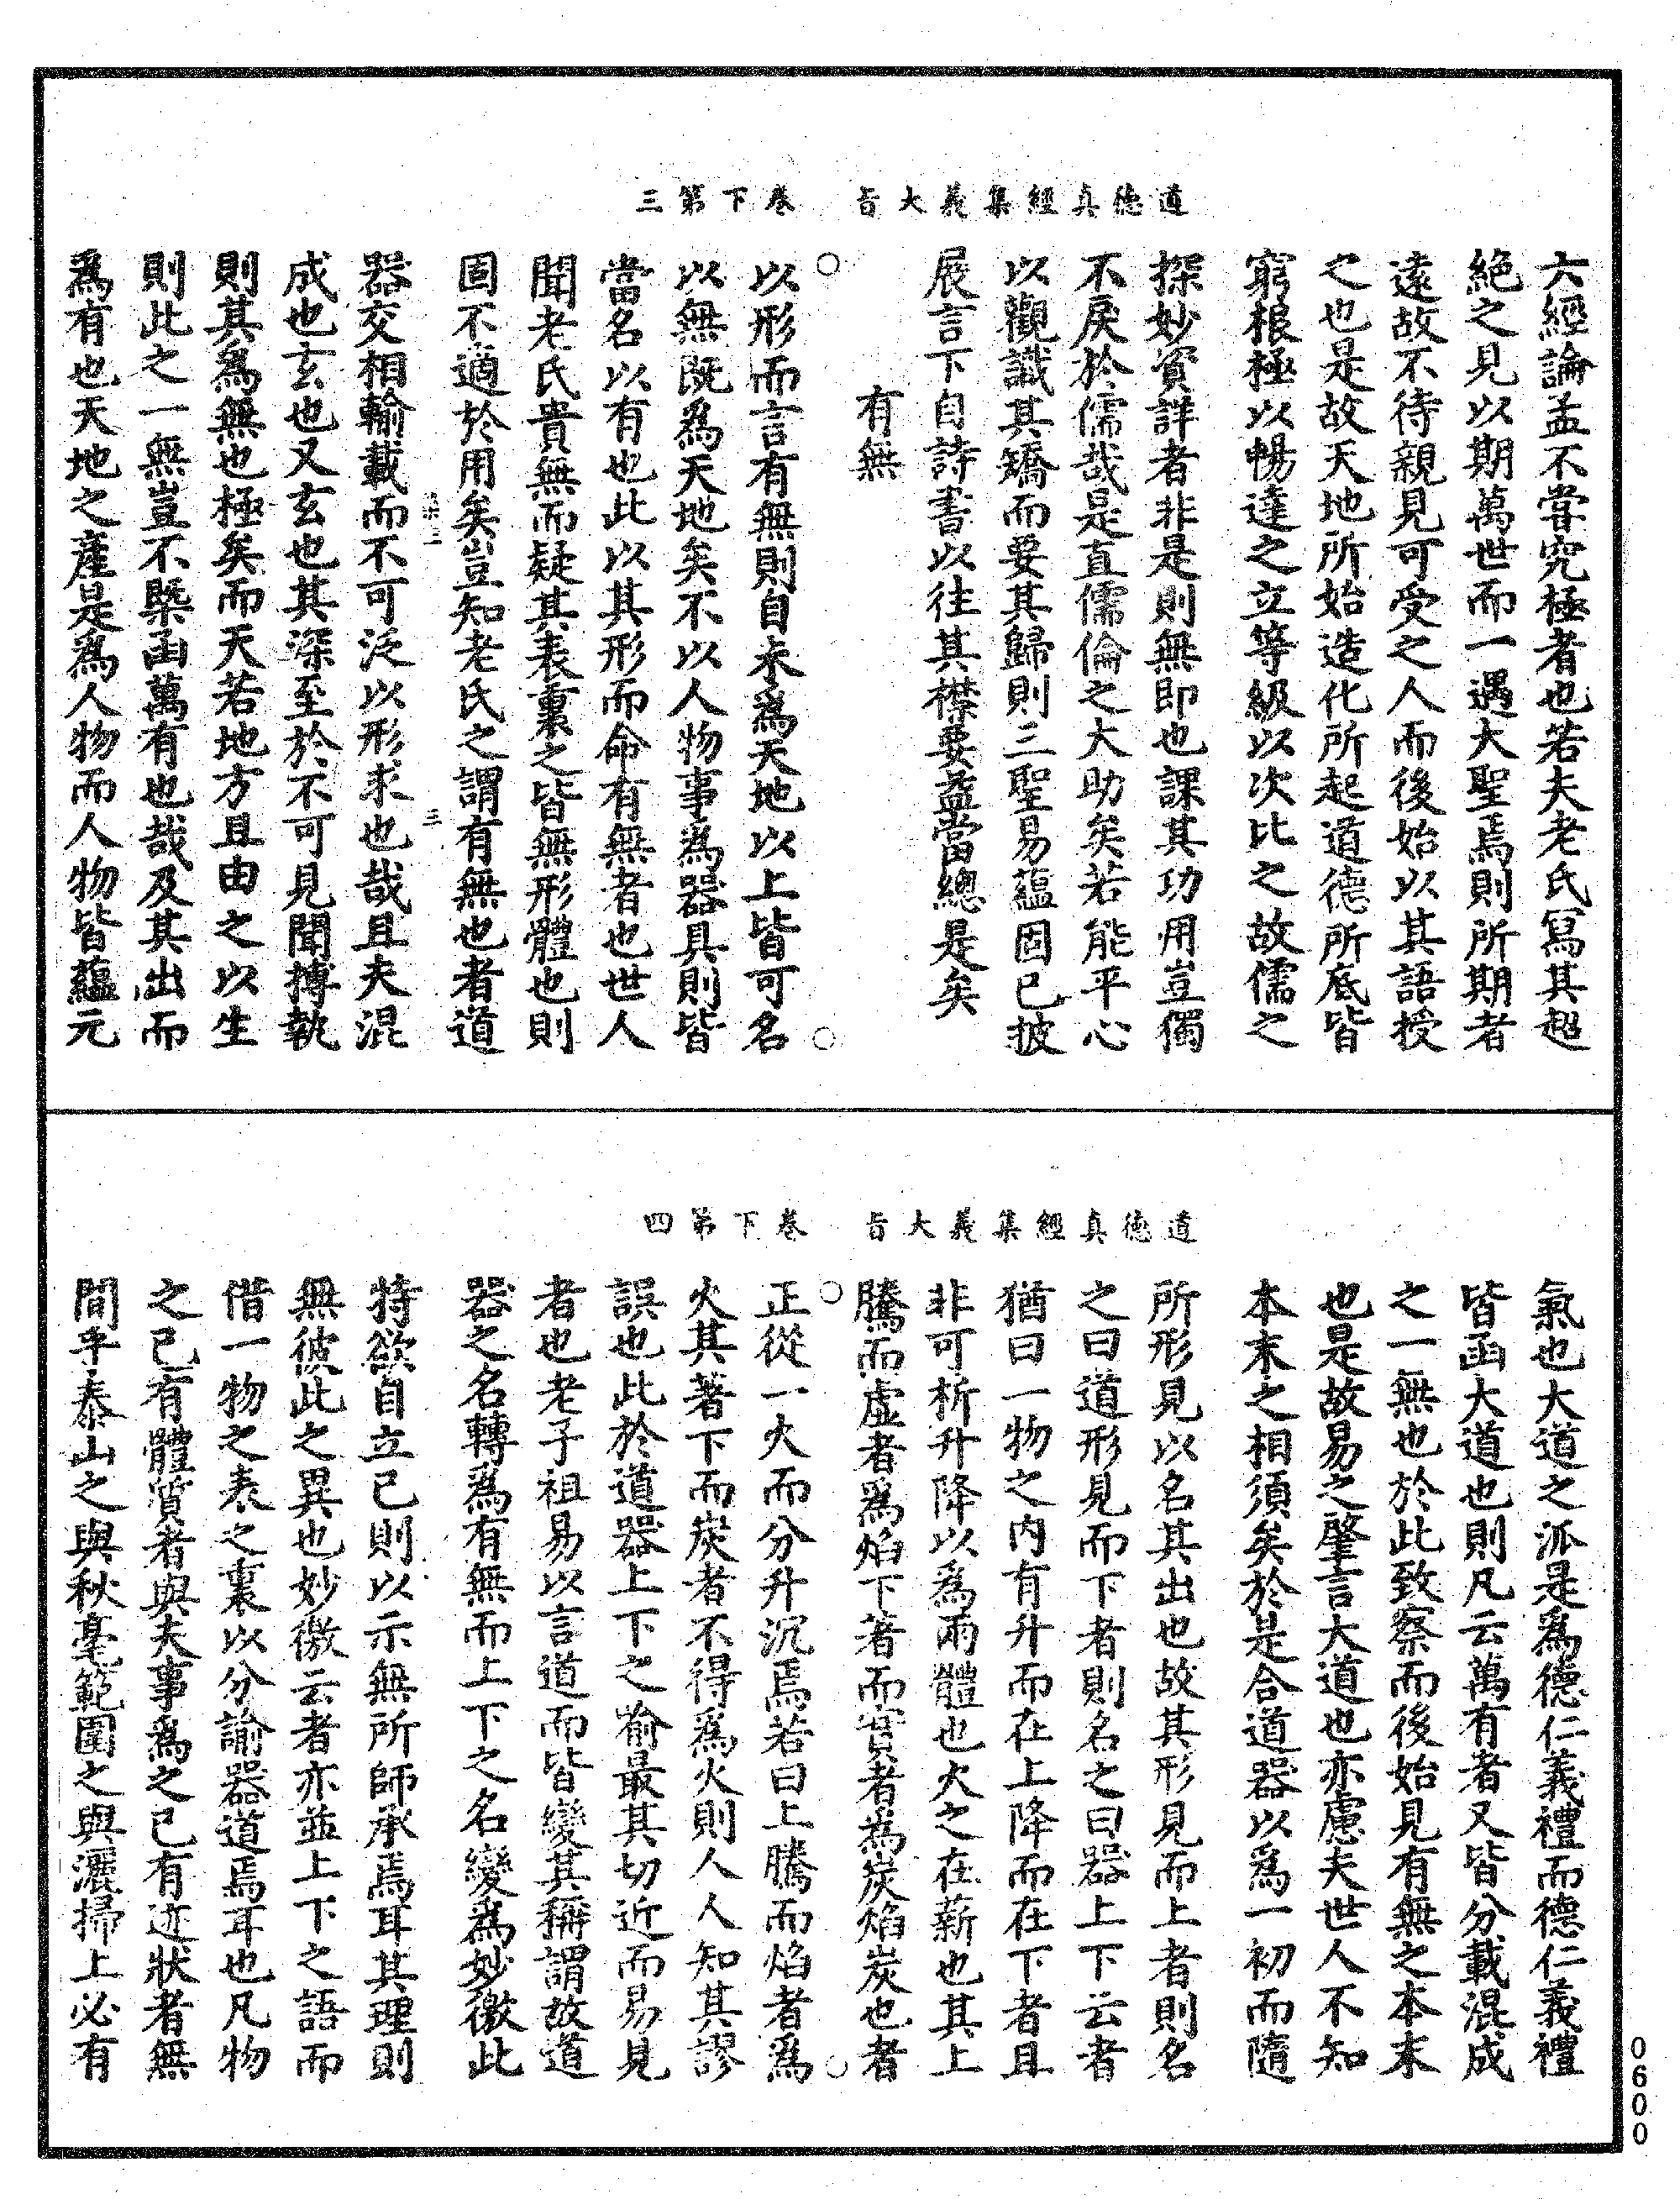 道德真經集義大旨　卷下第三
六經論孟不嘗究極者也若夫老氏寫其超
絶之見以期萬世而一遇大聖焉則所期者
遠故不待親見可受之人而後始以其語授
之也是故天地所始造化所起道德所底皆
窮根極以暢達之立等級以次比之故儒之
探妙資詳者非是則無即也課其功用豈獨
不戾於儒哉是直儒倫之大助矣若能平心
以觀識其矯而要其歸則三聖易蘊因已披
展言下自詩書以往其襟要益當總是矣
有無
以形而言有無則自未爲天地以上皆可名
以無既爲天地矣不以人物事爲器具則皆
當名以有也此以其形而命有無者也世人
聞老氏貴無而疑其表裏之皆無形體也則
固不適於用矣豈知老氏之謂有無也者道
器交相輸載而不可泛以形求也哉且夫混
成也玄也又玄也其深至於不可見聞摶執
則其爲無也極矣而天若地方且由之以生
則此之一無豈不槩函萬有也哉及其出而
爲有也天地之産是爲人物而人物皆蘊元
三
道德真經集義大旨　卷下第四
氣也大道之派是爲德仁義禮而德仁義禮
皆函大道也則凡云萬有者又皆分載混成
之一無也於此致察而後始見有無之本末
也是故易之肇言大道也亦慮夫世人不知
本末之相須矣於是合道器以爲一初而隨
所形見以名其出也故其形見而上者則名
之曰道形見而下者則名之曰器上下云者
猶曰一物之内有升而在上降而在下者且
非可析升降以爲兩體也火之在薪也其上
騰而虚者爲焰下著而實者爲炭焰炭也者
正從一火而分升沉焉若曰上騰而焰者爲
火其著下而炭者不得爲火則人人知其謬
誤也此於道器上下之喻最其切近而易見
者也老子祖易以言道而皆變其稱謂故道
器之名轉爲有無而上下之名變爲妙徼此
特欲自立己則以示無所師承焉耳其理則
無彼此之異也妙徼云者亦並上下之語而
借一物之表之裏以分諭器道焉耳也凡物
之已有體質者與夫事爲之已有迹狀者無
間乎泰山之與秋毫範圍之與灑掃上必有
0600